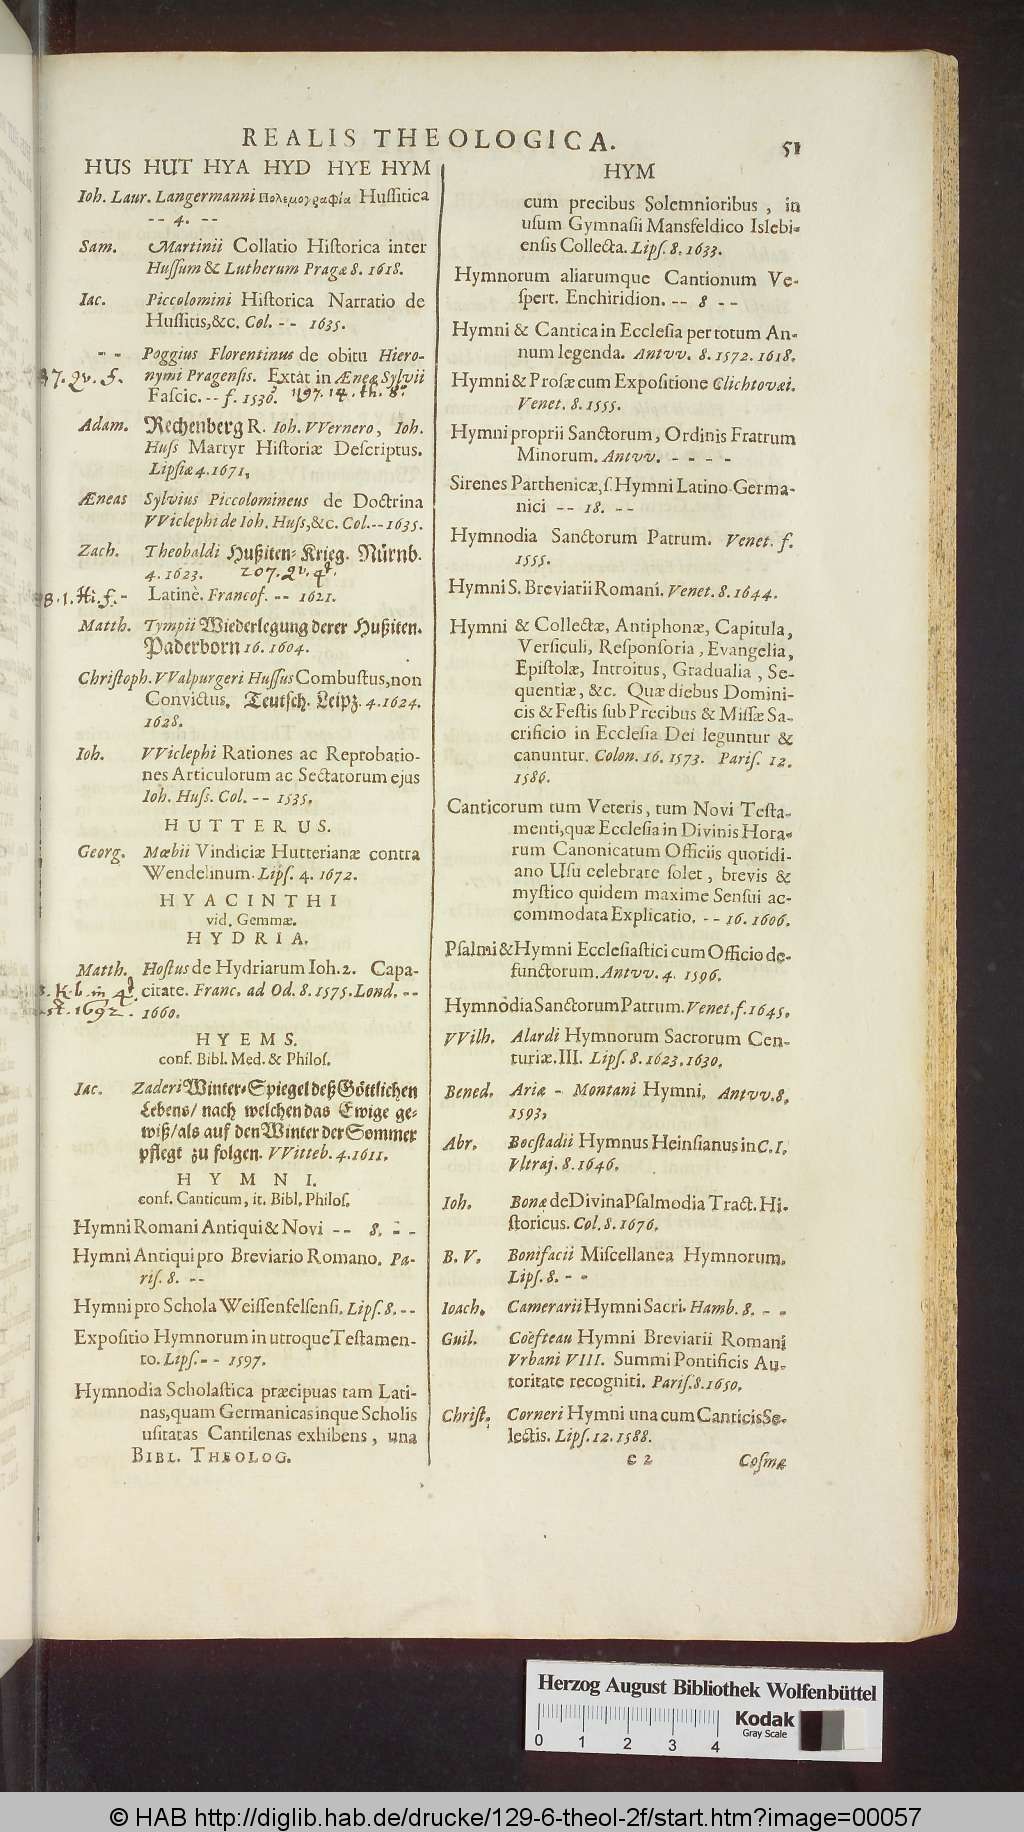 REALIS THEOLOGICA. 51
HUS HUT HYA HYD HYE HYM
Ioh. Laur. Langermanni Πολεμογραφία Huſſitica
-- 4. --
Sam. Martinii Collatio Hiſtorica inter
Huſſum & Lutherum Pragæ 8. 1618.
Iac. Piccolomini Hiſtorica Narratio de
Huſſitis,&c. Col. -- 1635.
-- Poggius Florentinus de obitu Hiero-
37. Qv. f. nymi Pragenſis. Extat in Æneæ Sylvii
Faſcic. -- f. 1536. 1197. 14. th. 8°
Adam. Rechenberg R. Ioh. VVernero, Ioh.
Huſs Martyr Hiſtoriæ Deſcriptus.
Lipſiæ 4. 1671.
Æneas Sylvius Piccolomineus de Doctrina
VViclephi de Ioh. Huſs,&c. Col.--1635.
Zach. Theobaldi Hußiten-Krieg. Nürnb.
4. 1623. 207. Qv. 4t.
38. 1. Hi. f. - Latinè. Francof. -- 1621.
Matth. Tympii Wiederlegung derer Hußiten.
Paderborn 16. 1604.
Chriſtoph. VValpurgeri Huſſus Combuſtus, non
Convictus. Teutſch. Leipz. 4. 1624.
1628.
Ioh. VViclephi Rationes ac Reprobatio-
nes Articulorum ac Sectatorum ejus
Ioh. Huſs. Col. -- 1535.
HUTTERUS.
Georg. Mœbii Vindiciæ Hutterianæ contra
Wendelinum. Lipſ. 4. 1672.
HYACINTHI
vid. Gemmæ.
HYDRIA.
Matth. Hoſtus de Hydriarum Ioh. 2. Capa-
citate. Franc. ad Od. 8. 1575. Lond. --
1692. 1660.
HYEMS.
conf. Bibl. Med. & Philoſ.
Iac. Zaderi Winter-Spiegel deß Göttlichen
Lebens/ nach welchen das Ewige ge-
wiß/ als auf den Winter der Sommer
pflegt zu folgen. VVitteb. 4. 1611.
HYMNI.
conf. Canticum, it. Bibl. Philoſ.
Hymni Romani Antiqui & Novi -- 8. --
Hymni Antiqui pro Breviario Romano. Pa-
riſ. 8. --
Hymni pro Schola Weiſſenfelſenſi. Lipſ. 8. --
Expoſitio Hymnorum in utroque Teſtamen-
to. Lipſ. -- 1597.
Hymnodia Scholaſtica præcipuas tam Lati-
nas, quam Germanicas inque Scholis
uſitatas Cantilenas exhibens, una
BIBL. THEOLOG.
HYM
cum precibus Solemnioribus, in
uſum Gymnaſii Mansfeldico Islebi-
enſis Collecta. Lipſ. 8. 1633.
Hymnorum aliarumque Cantionum Ve-
ſpert. Enchiridion. -- 8 --
Hymni & Cantica in Eccleſia per totum An-
num legenda. Antvv. 8. 1572. 1618.
Hymni & Proſæ cum Expoſitione Clichtovæi.
Venet. 8. 1555.
Hymni proprii Sanctorum, Ordinis Fratrum
Minorum. Antvv. - - - -
Sirenes Parthenicæ, ſ. Hymni Latino-Germa-
nici -- 18. --
Hymnodia Sanctorum Patrum. Venet. f.
1555.
Hymni S. Breviarii Romani. Venet. 8. 1644.
Hymni & Collectæ, Antiphonæ, Capitula,
Verſiculi, Reſponſoria, Evangelia,
Epiſtolæ, Introitus, Gradualia, Se-
quentiæ, &c. Quæ diebus Domini-
cis & Feſtis ſub Precibus & Miſſæ Sa-
crificio in Eccleſia Dei leguntur &
canuntur. Colon. 16. 1573. Pariſ. 12.
1586.
Canticorum tum Veteris, tum Novi Teſta-
menti, quæ Eccleſia in Divinis Hora-
rum Canonicarum Officiis quotidi-
ano Uſu celebrare ſolet, brevis &
myſtico quidem maxime Senſui ac-
commodata Explicatio. -- 16. 1606.
Pſalmi & Hymni Eccleſiaſtici cum Officio de-
functorum. Antvv. 4. 1596.
Hymnodia Sanctorum Patrum. Venet. f. 1645.
VVilh. Alardi Hymnorum Sacrorum Cen-
turiæ. III. Lipſ. 8. 1623. 1630.
Bened. Ariæ - Montani Hymni. Antvv. 8.
1593.
Abr. Bocſtadii Hymnus Heinſianus in C. I.
Vltraj. 8. 1646.
Ioh. Bonæ de Divina Pſalmodia Tract. Hi-
ſtoricus. Col. 8. 1676.
B. V. Bonifacii Miſcellanea Hymnorum.
Lipſ. 8. - -
Ioach. Camerarii Hymni Sacri. Hamb. 8. - -
Guil. Coëfteau Hymni Breviarii Romani
Vrbani VIII. Summi Pontificis Au-
toritate recogniti. Pariſ. 8. 1650.
Chriſt. Corneri Hymni una cum Canticis Se-
lectis. Lipſ. 12. 1588.
c 2 Coſmæ
Herzog August Bibliothek Wolfenbüttel
Kodak
Gray Scale
0 1 2 3 4
© HAB http://diglib.hab.de/drucke/129-6-theol-2f/start.htm?image=00057